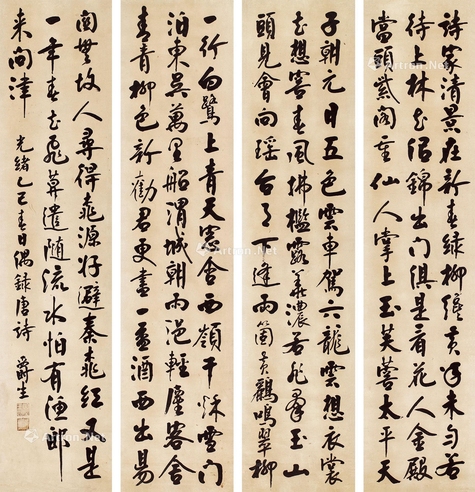 詩家清景在新春綠柳纔黃半未勻若
待上林花似錦出門俱是看花人金殿
當頭紫閣重仙人掌上玉芙蓉太平天
子朝元日五色雲車駕六龍雲想衣裳
花想容春風拂檻露華濃若非羣玉山
頭見會向瑤台月下逢兩箇黃鸝鳴翠柳
一行白鷺上青天窓含西嶺千秋雪門
泊東吳萬里船渭城朝雨浥輕塵客舍
青青柳色新勸君更盡一盃酒西出昜
關無故人尋得桃源好避秦桃紅又是
一年春花飛莫遣隨流水怕有漁郎
來問津 光緒乙巳春日偶錄唐詩 爵生